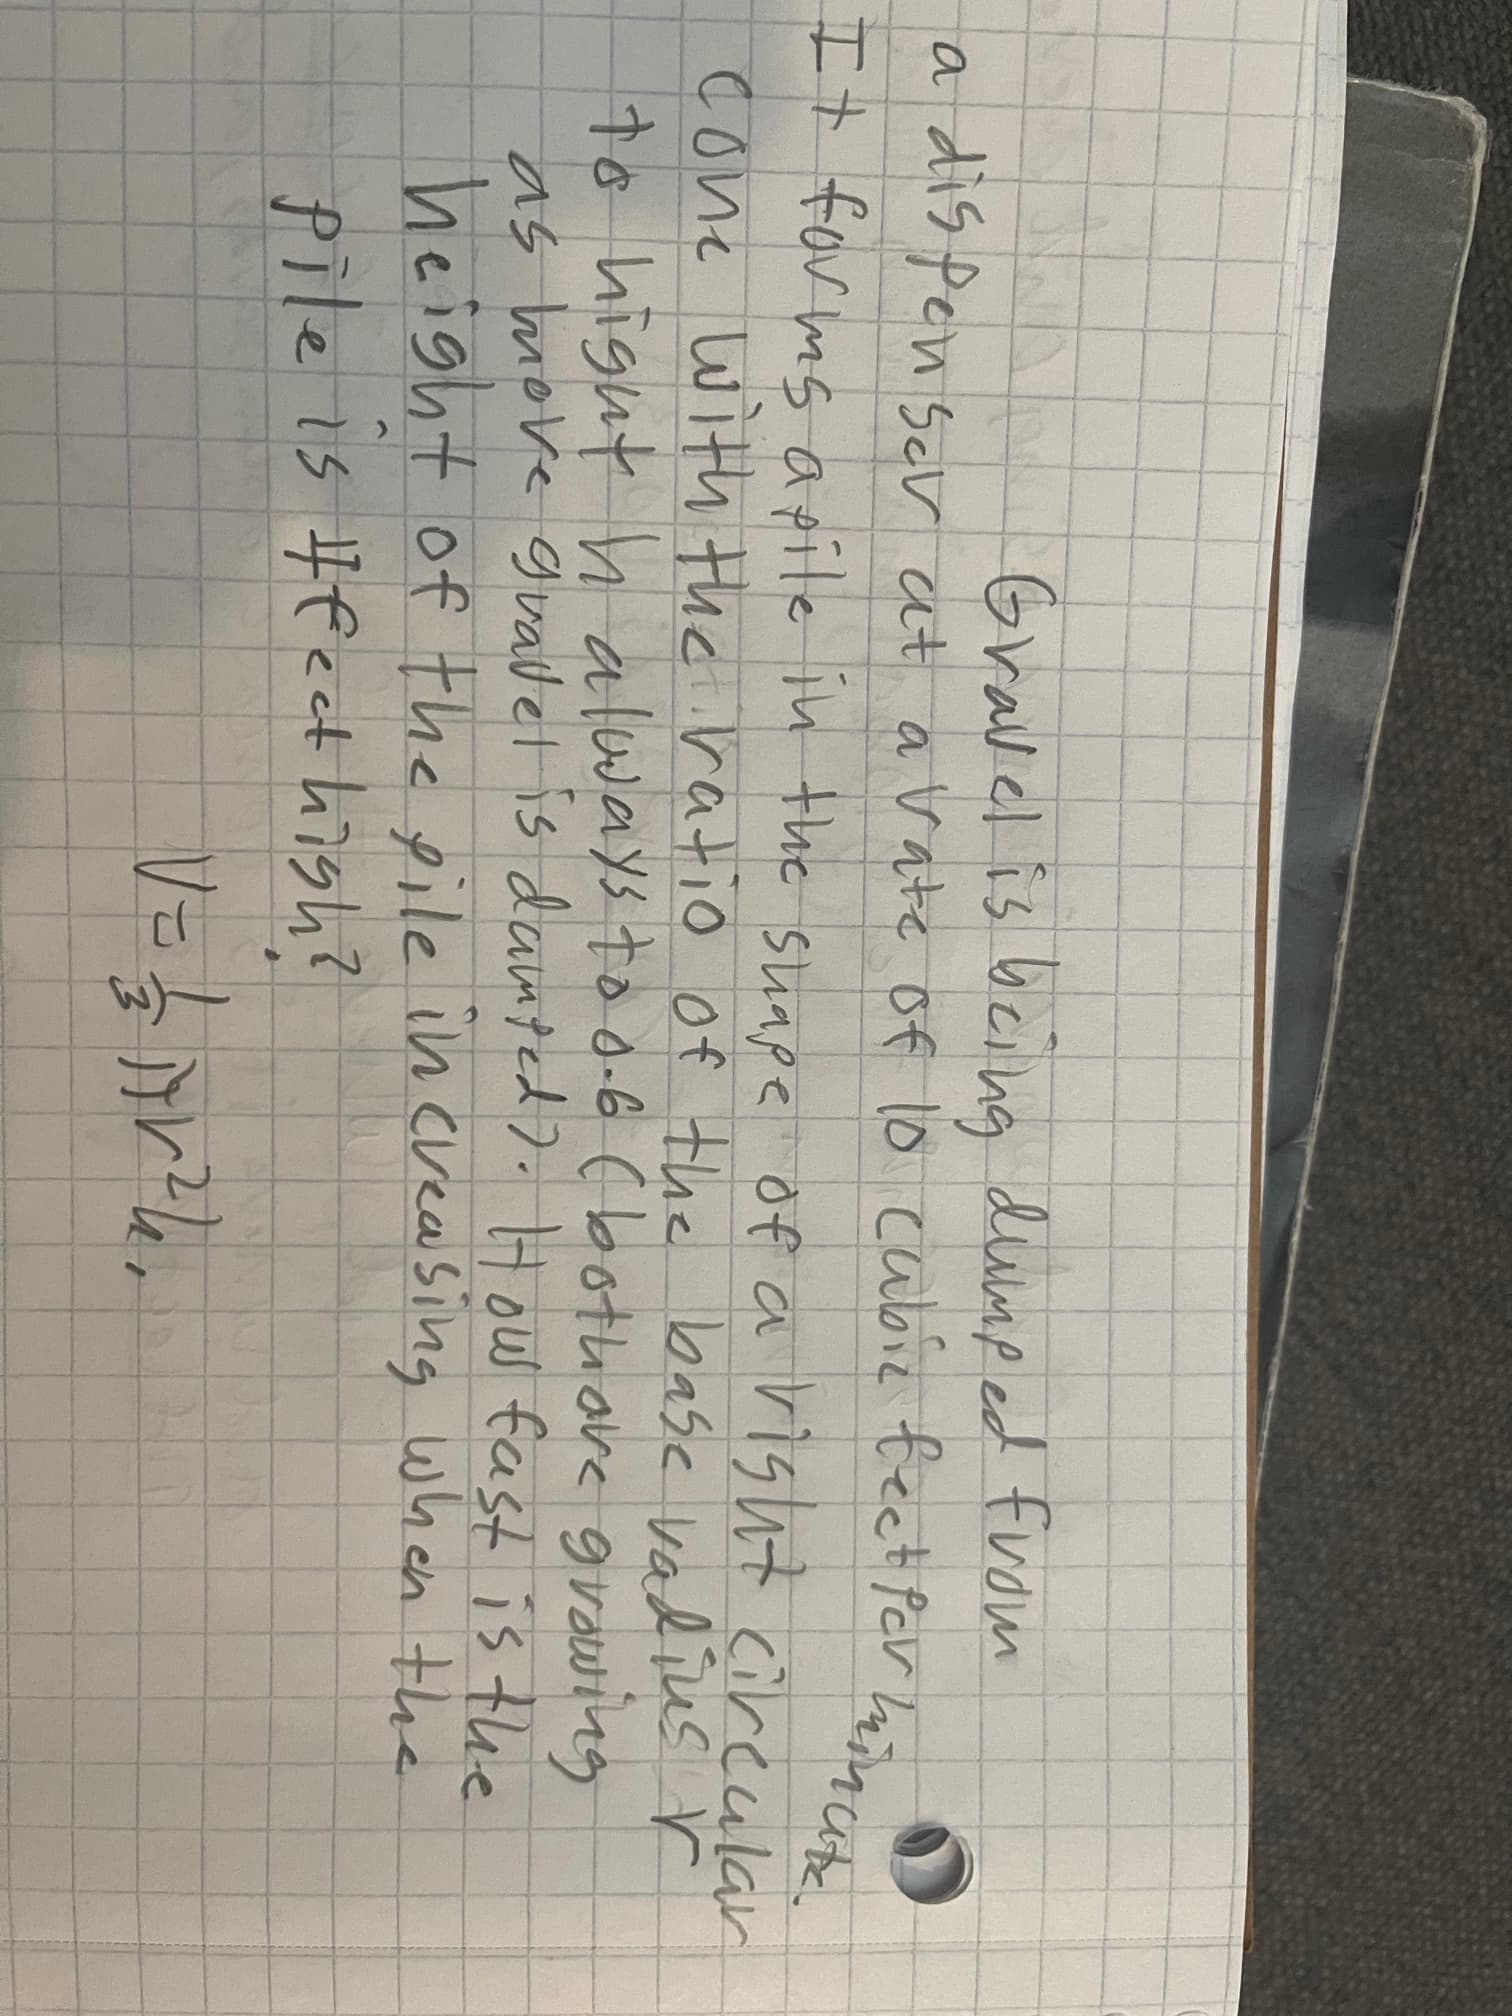 Gravel is being dumped from
a dispenser at a rate of 10 cubic feet per minute.
It forms a pile in the shape of a right circular
cone with the ratio of the base radius r
to hight h always to 0.6 (both are growing
as more gravel is dumped). How fast is the
height of the pile increasing when the
pile is feet high?
V = 1/3 πr²h,